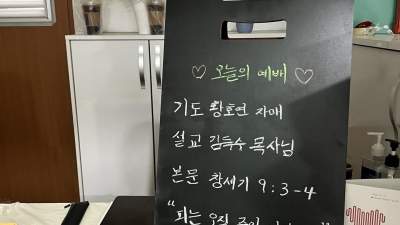 ♡ 오늘의 예배 ♡
기도 황호연 자매
설교 김득수 목사님
본문 창세기 9:3-4
"피는 오직